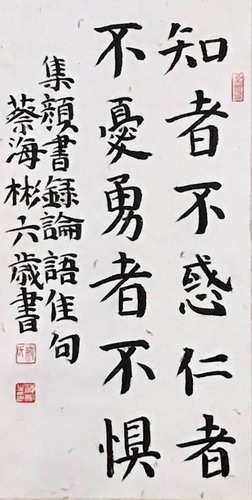 知者不惑仁者
不憂勇者不惧
集顔書録論語佳句
蔡海彬六歳書